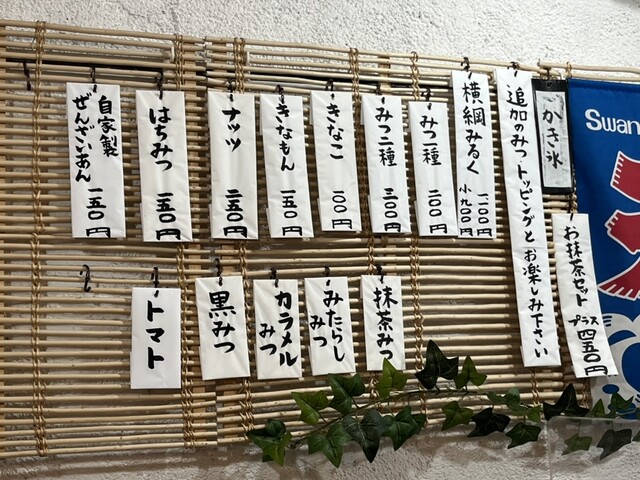 かき氷
追加のみつトッピングとお楽しみ下さい
横綱みるく
一、一〇〇円
小九〇〇円
みつ一種
二〇〇円
みつ二種
三〇〇円
きなこ
一〇〇円
きなもん
一五〇円
ナッツ
二五〇円
はちみつ
一五〇円
自家製
ぜんざいあん
一五〇円
お抹茶セット
プラス四五〇円
抹茶みつ
みたらし
みつ
カラメル
みつ
黒みつ
トマト
Swan